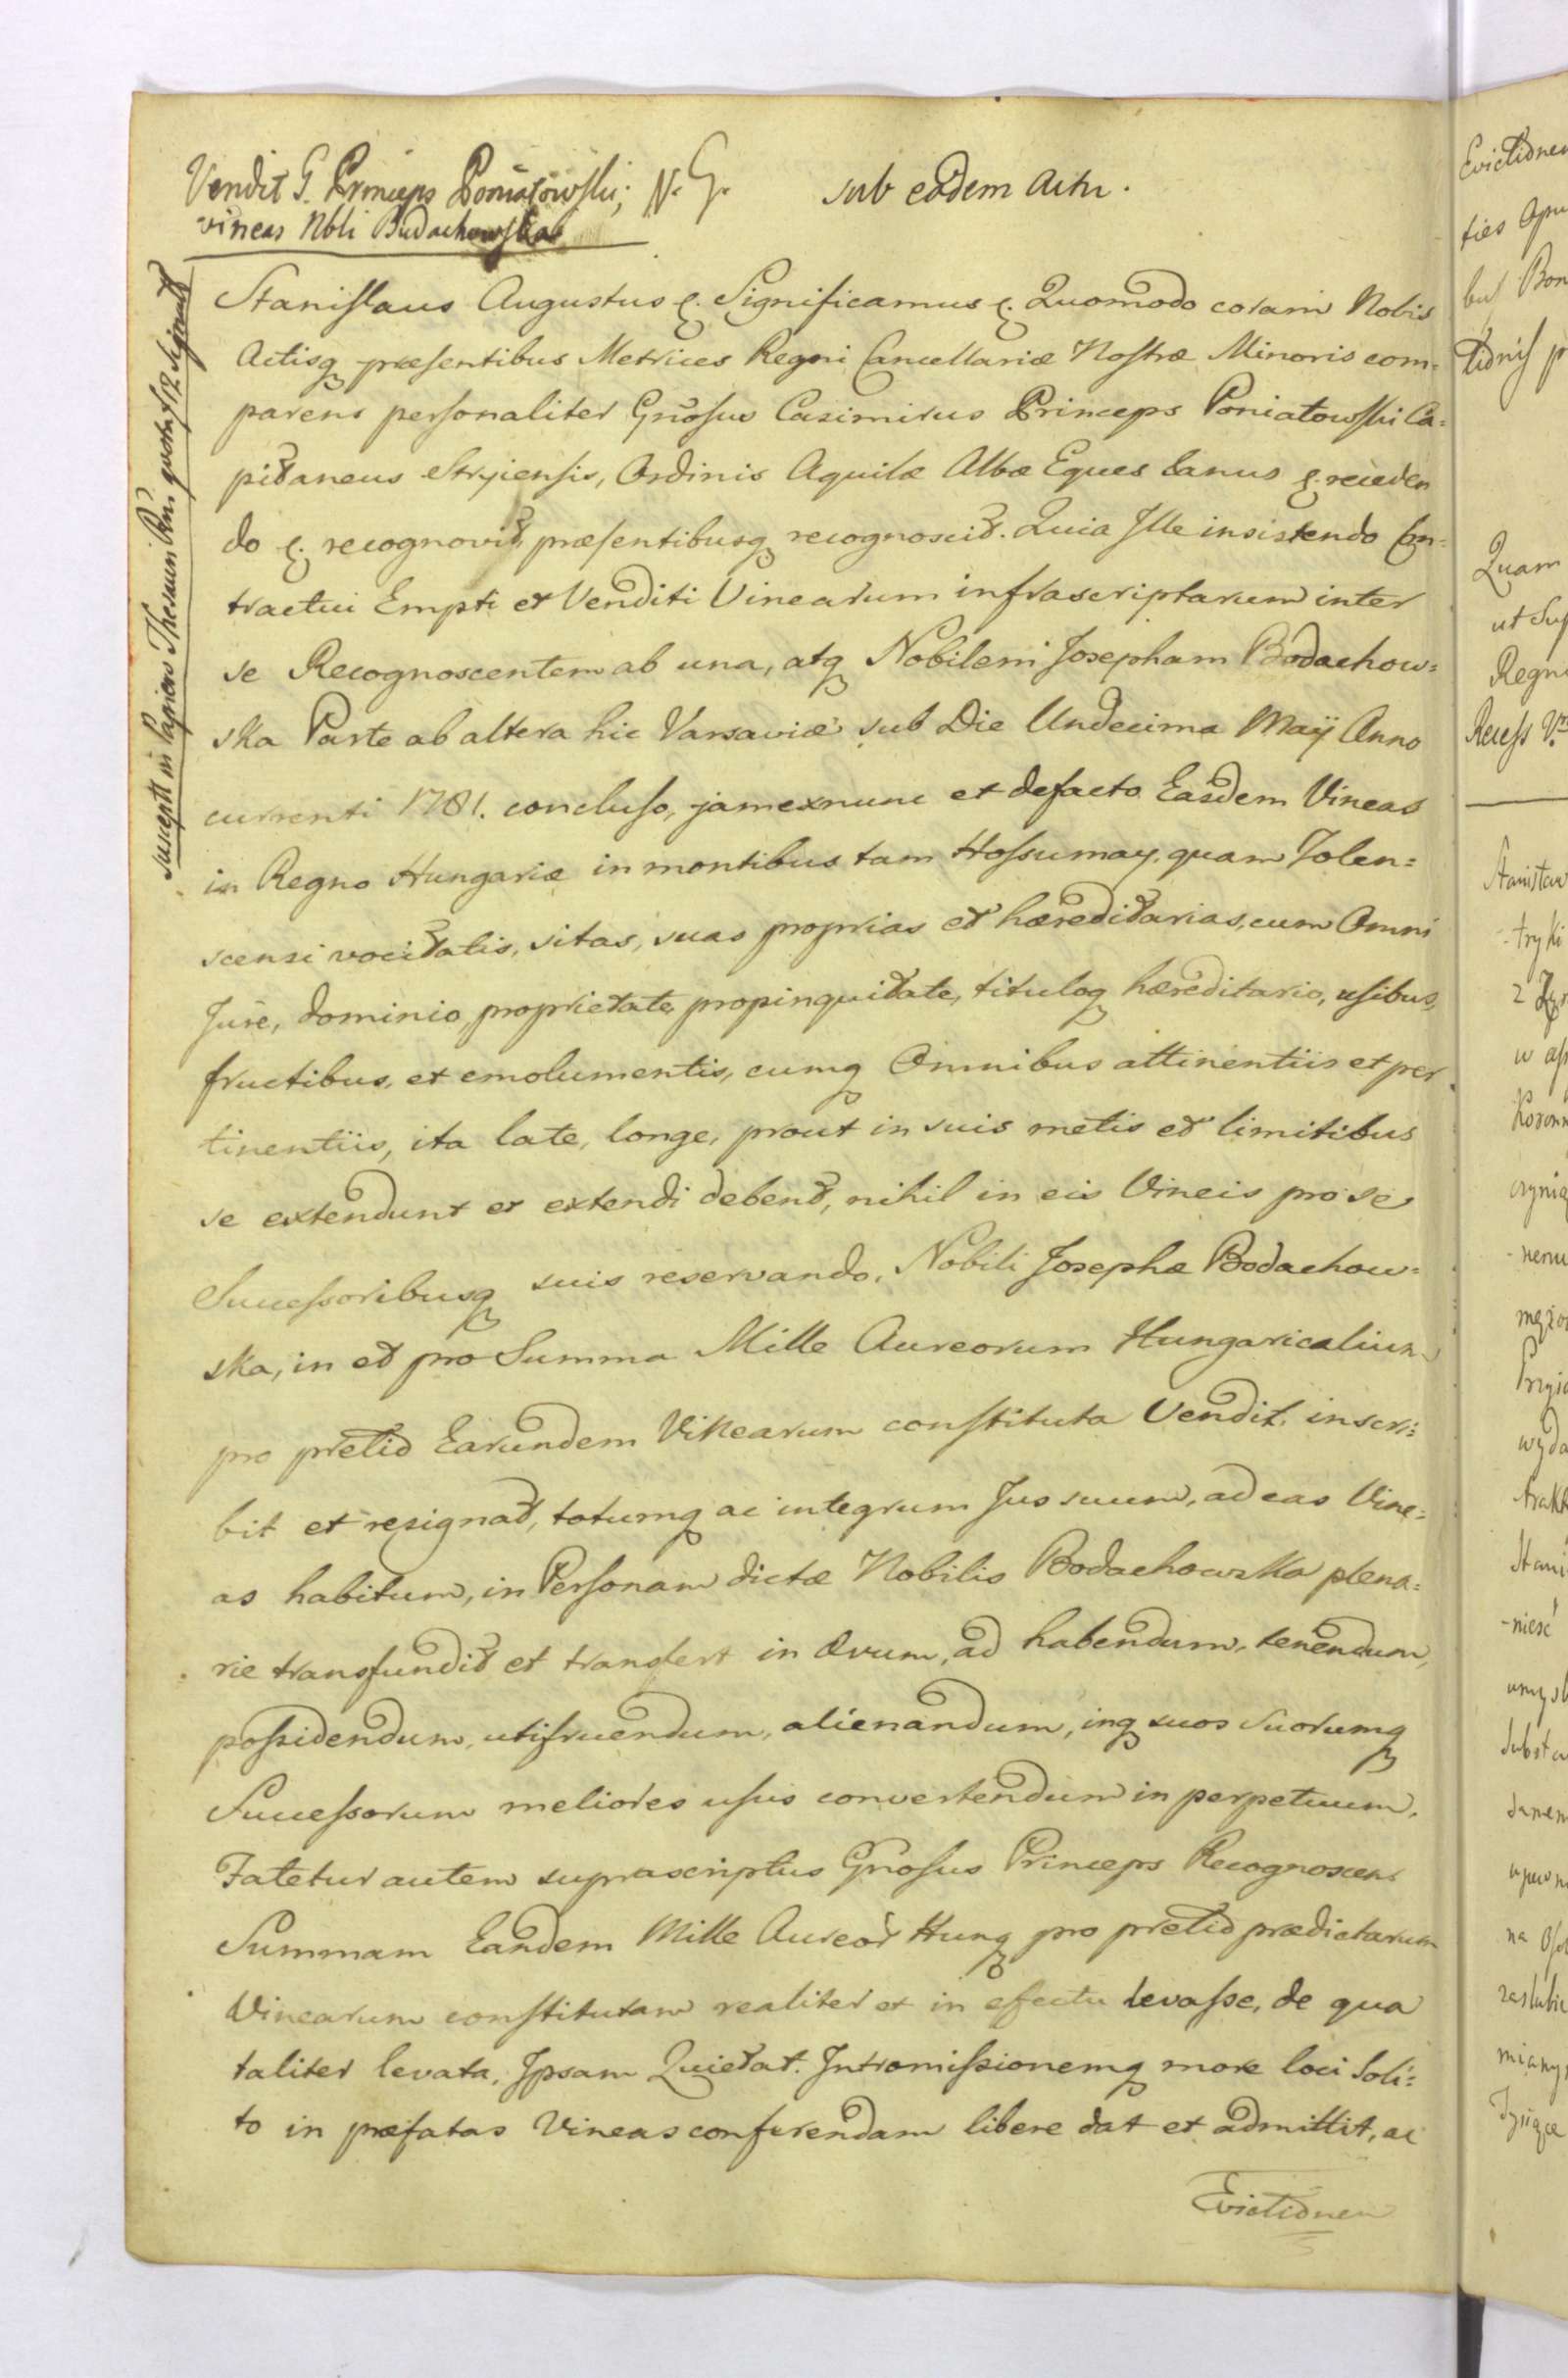 Vendit G. Princeps Poniatowski; N. G.
vineas Nbli Budachowskae
sub eodem Actu.
Stanislaus Augustus &. Significamus &. Quomodo coram Nobis
Actisq præsentibus Metrices Regni Cancellariæ Nostræ Minoris com=
parens personaliter Gnosus Casimirus Princeps Poniatowski Ca=
pitaneus Stryiensis, Ordinis Aquilæ Albæ Eques sanus &. receden
do &. recognovit, præsentibusq recognoscit. Quia Ille insistendo Con=
tractui Empti et Venditi Vinearum infrascriptarum inter
se Recognoscentem ab una, atq Nobilem Josepham Bodachow=
ska Parte ab altera hic Varsaviæ sub Die Undecima Maÿ Anno
currenti 1781. concluso, jamexnunc et defacto Easdem Vineas
in Regno Hungariæ in montibus tam Hossumay, quam Tolen=
scensi vocitatis, sitas, suas proprias et hæreditarias, cum Omni
Jure, dominio, proprietate, propinquitate, tituloq hæreditario, usibus,
fructibus, et emolumentis, cumq Omnibus attinentiis et per
tinentiis, ita late, longe, prout in suis metis et limitibus
se extendunt et extendi debent, nihil in eis Vineis pro se
Successoribusq suis reservando, Nobili Josephæ Bodachow=
ska, in et pro Summa Mille Aureorum Hungaricalium
pro pretio Earundem Vinearum constituta Vendit, inscri=
bit et resignat, totumq ac integrum Jus suum, ad eas Vine=
as habitum, in Personam dictæ Nobilis Bodachowska plena=
rie transfundit et transfert in Ævum, ad habendum, tenendum,
possidendum, utifruendum, alienandum, inq suos Suorumq
Successorum meliores usus convertendum in perpetuum.
Fatetur autem suprascriptus Gnosus Princeps Recognoscens
Summam Eandem Mille Aureor Hung pro pretio prædictarum
Vinearum constitutam realiter et in efectu levasse, de qua
taliter levata, Ipsam Quietat. Intromissionemq more loci Soli=
to in præfatas Vineas conferendam libere dat et admittit, ac
Evictionem